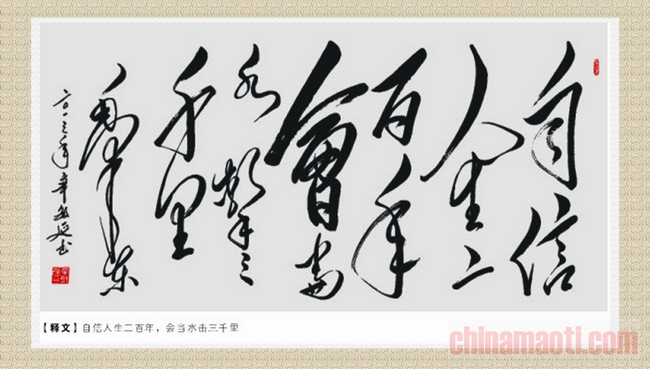 自信
人生二
百年
會當
水擊三
千里
毛澤東
二〇一三年
【释文】自信人生二百年，会当水击三千里
chinamaoti.com